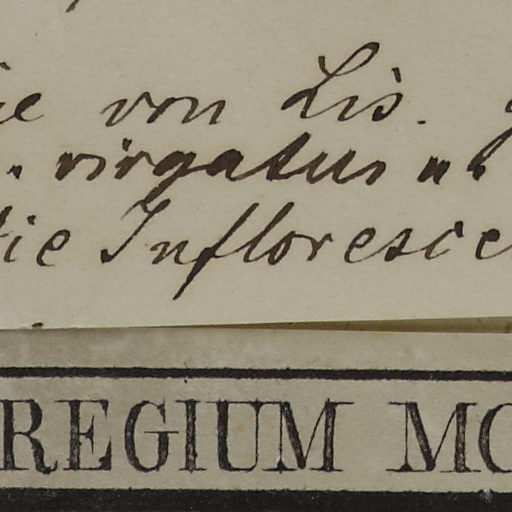 ie von Lis. g
. virgatus u.
tie Infloresce
REGIUM MO